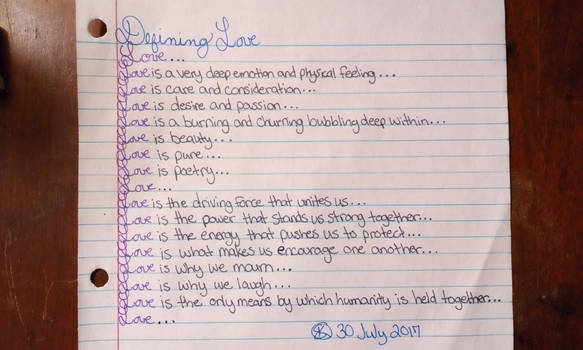 Defining Love
Love...
Love is a very deep emotion and physical feeling...
Love is care and consideration...
Love is desire and passion...
Love is a burning and churning bubbling deep within...
Love is beauty...
Love is pure...
Love is poetry...
Love...
Love is the driving force that unites us...
Love is the power that stands us strong together...
Love is the energy that pushes us to protect...
Love is what makes us encourage one another...
Love is why we mourn...
Love is why we laugh...
Love is the only means by which humanity is held together...
Love...
30 July 2017